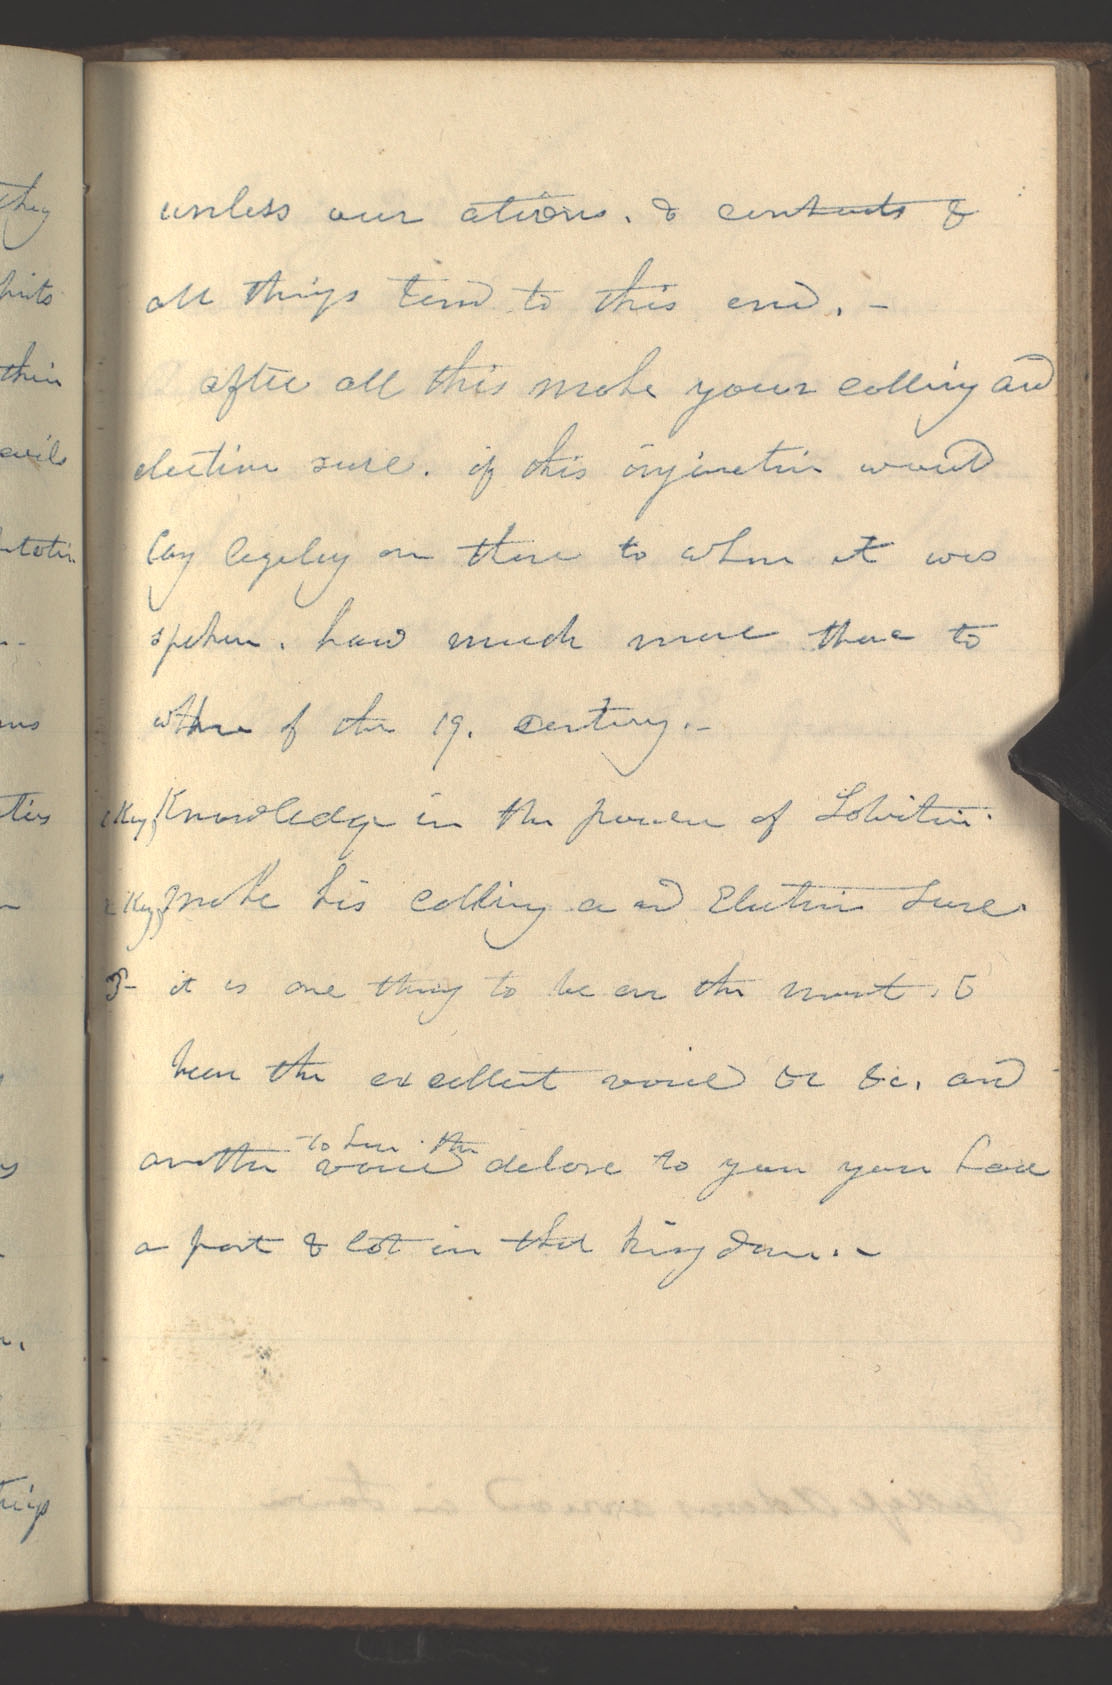 they
unless our ations. & contracts &
all things tend to this end. -
after all this make your calling and
election sure. if this injunction would
lay largeley on those to whom it was
spoken. how much more those to
them of the 19. century.-
1 Key Knowledge in the power of Salvation.
2 Key make his calling and Election Sure.
3- it is one thing to be on the mount. &
hear the excellent voice &c &c. and
another to hear the voice declare to you you have
a part & lot in that kingdom.-